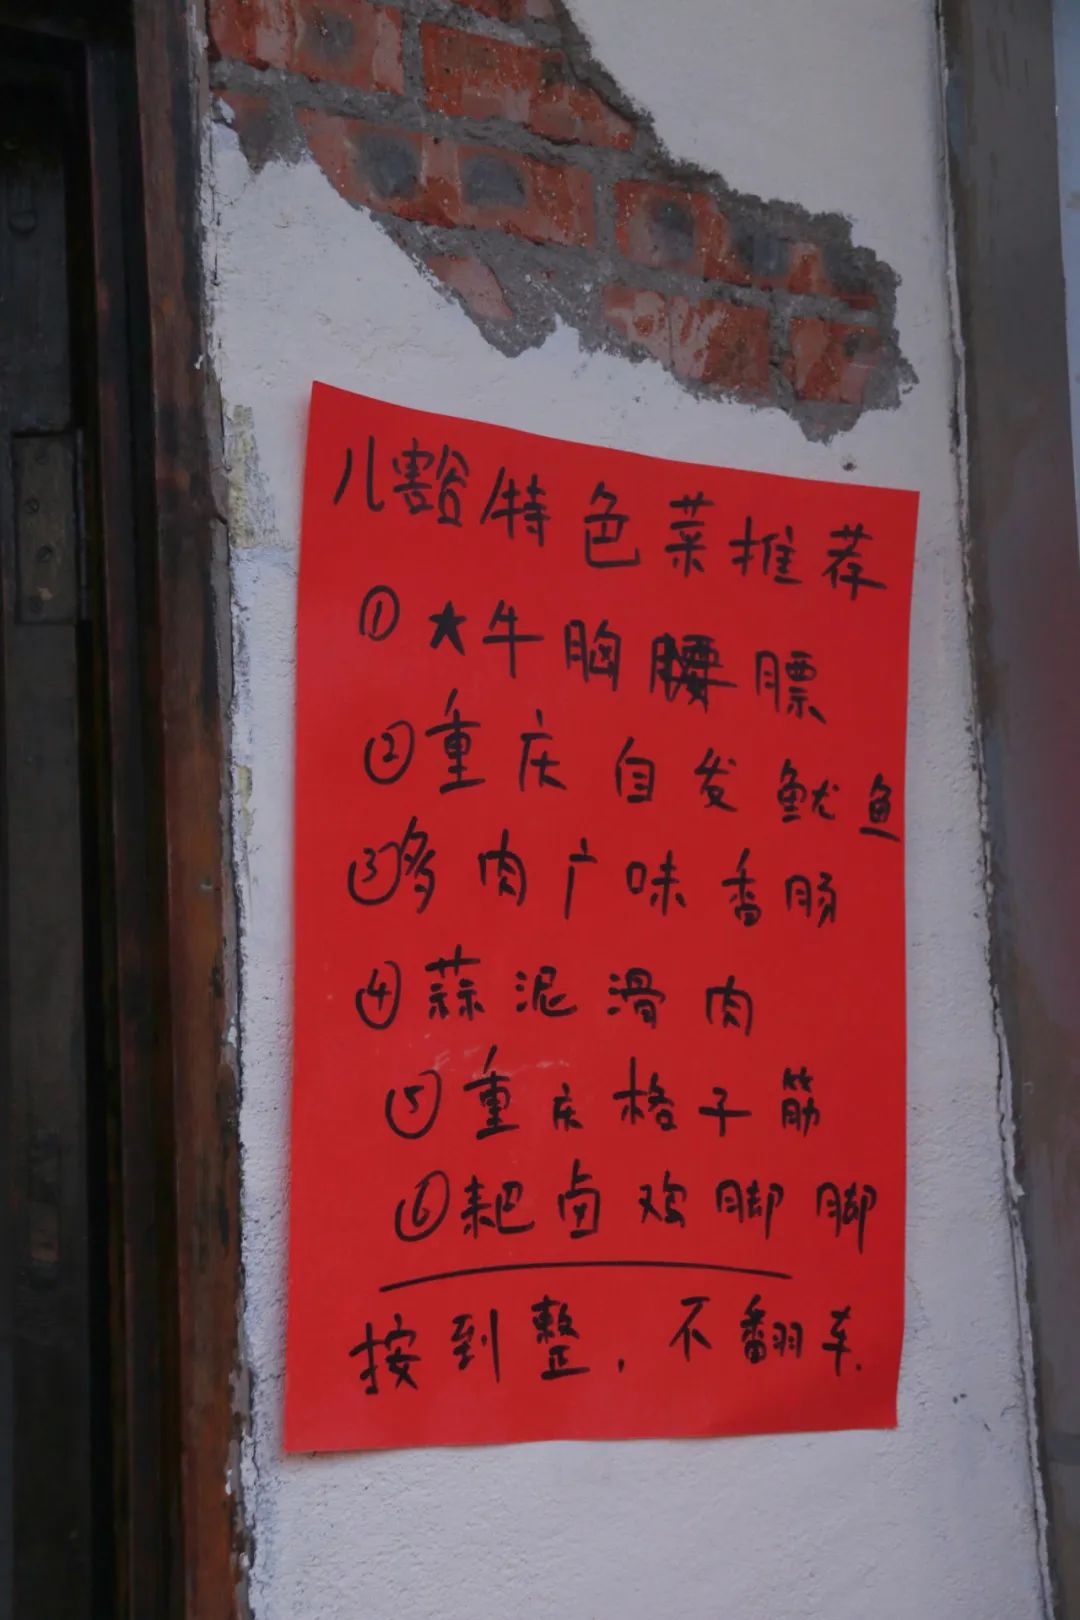 儿豁特色菜推荐
①★牛胸膘
②重庆自发鱿鱼
③多肉广味香肠
④蒜泥滑肉
⑤重庆格子筋
⑥耙卤鸡脚脚
按到整，不翻车.